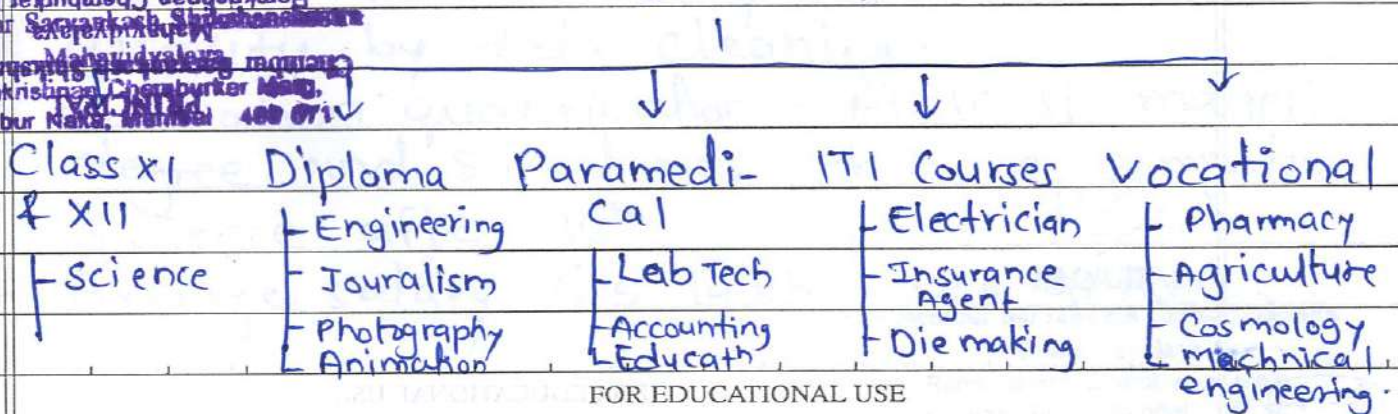 Sarvankash
Mahavidyalaya
PRINCIPAL
Class XI
& XII
Science
Diploma
Engineering
Jouralism
Photography
Animation
Paramedi-
cal
Lab Tech
Accounting
Educatn
ITI Courses
Electrician
Insurance
Agent
Die making
Vocational
Pharmacy
Agriculture
Cosmology
Machnical
engineering.
FOR EDUCATIONAL USE